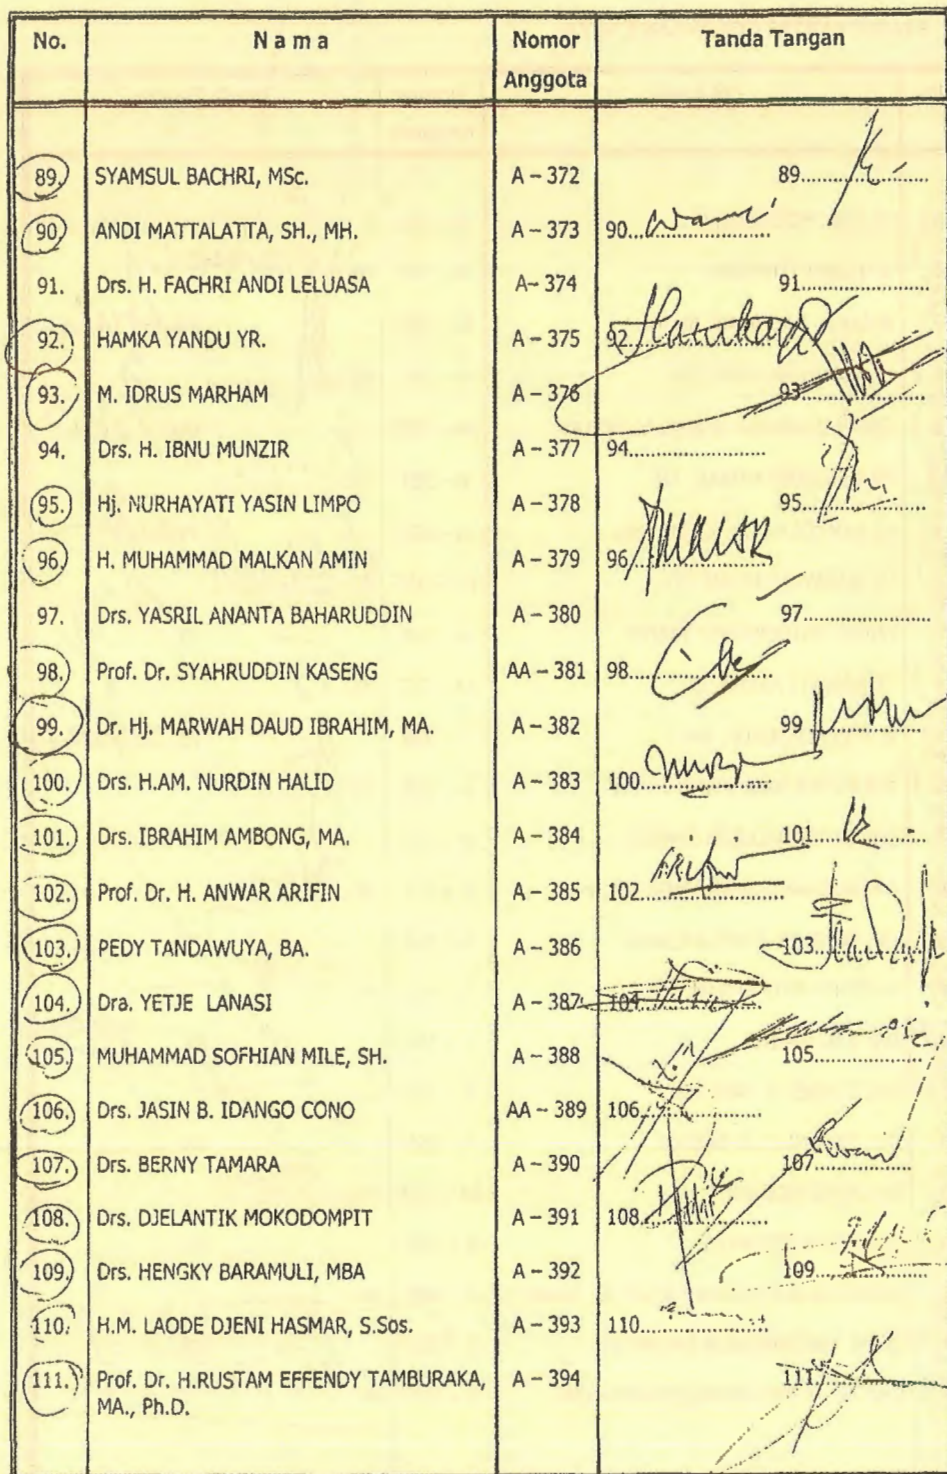 No. Nama Nomor Anggota Tanda Tangan
89. SYAMSUL BACHRI, MSc. A – 372 89..................
90. ANDI MATTALATTA, SH., MH. A – 373 90..................
91. Drs. H. FACHRI ANDI LELUASA A– 374 91..................
92. HAMKA YANDU YR. A – 375 92. Hamka
93. M. IDRUS MARHAM A – 376 93..................
94. Drs. H. IBNU MUNZIR A – 377 94..................
95. Hj. NURHAYATI YASIN LIMPO A – 378 95..................
96. H. MUHAMMAD MALKAN AMIN A – 379 96..................
97. Drs. YASRIL ANANTA BAHARUDDIN A – 380 97..................
98. Prof. Dr. SYAHRUDDIN KASENG AA – 381 98..................
99. Dr. Hj. MARWAH DAUD IBRAHIM, MA. A – 382 99..................
100. Drs. H.AM. NURDIN HALID A – 383 100..................
101. Drs. IBRAHIM AMBONG, MA. A – 384 101..................
102. Prof. Dr. H. ANWAR ARIFIN A – 385 102..................
103. PEDY TANDAWUYA, BA. A – 386 103..................
104. Dra. YETJE LANASI A – 387 104..................
105. MUHAMMAD SOFHIAN MILE, SH. A – 388 105..................
106. Drs. JASIN B. IDANGO CONO AA – 389 106..................
107. Drs. BERNY TAMARA A – 390 107..................
108. Drs. DJELANTIK MOKODOMPIT A – 391 108..................
109. Drs. HENGKY BARAMULI, MBA A – 392 109..................
110. H.M. LAODE DJENI HASMAR, S.Sos. A – 393 110..................
111. Prof. Dr. H.RUSTAM EFFENDY TAMBURAKA, A – 394 111..................
MA., Ph.D.